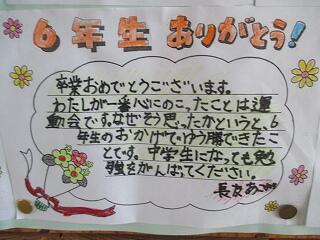 6年生ありがとう!
卒業おめでとうございます。
わたしが一番心にのこったことは運
動会です。なぜそう思ったかというと、6
年生のおかげでゆう勝できたこ
とです。中学生になっても勉
強をがんばってください。
長友あこ